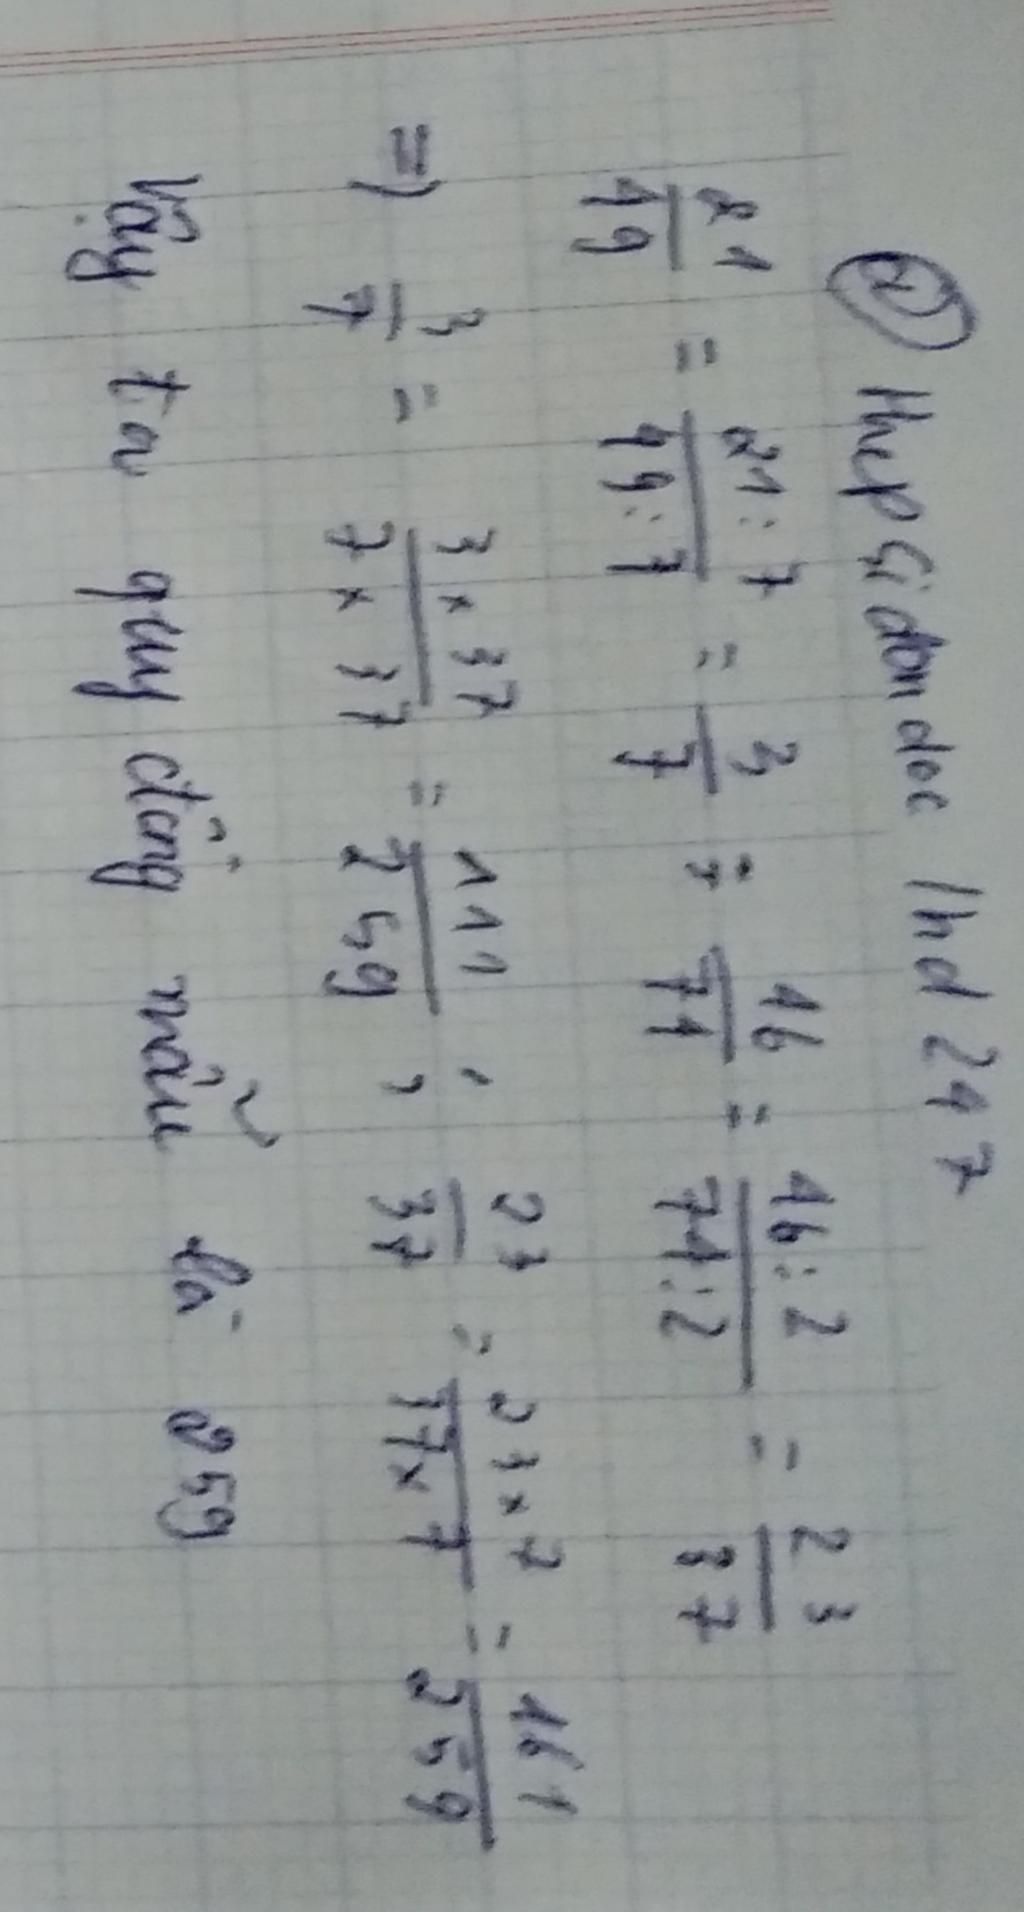 @ HupGidondoc lhd 247
21/49 = 21:7/49:7 = 3/7 ; 46/74 = 46:2/74:2 = 23/37
=) 3/7 = 3x37/7x37 = 111/259 ; 23/37 = 23x7/37x7 = 161/259
Vậy ta quy đồng mẫu là 259